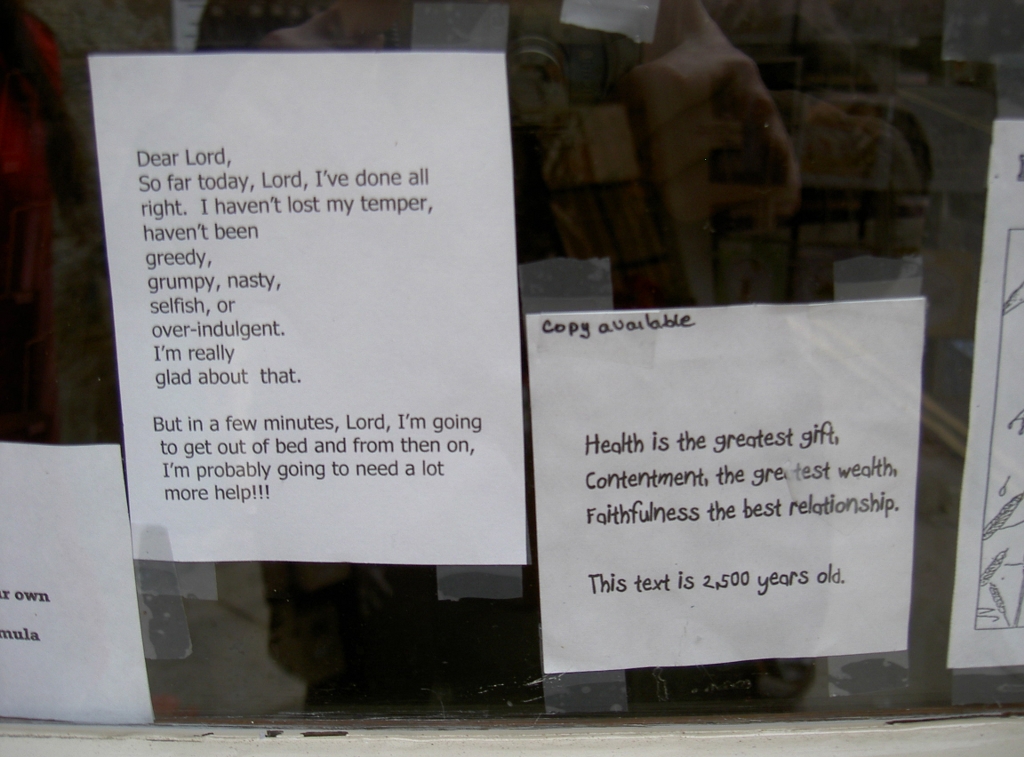 Dear Lord,
So far today, Lord, I've done all
right. I haven't lost my temper,
haven't been
greedy,
grumpy, nasty,
selfish, or
over-indulgent.
I'm really
glad about that.
But in a few minutes, Lord, I'm going
to get out of bed and from then on,
I'm probably going to need a lot
more help!!!
Copy available
Health is the greatest gift,
Contentment, the greatest wealth,
Faithfulness the best relationship.
This text is 2,500 years old.
own